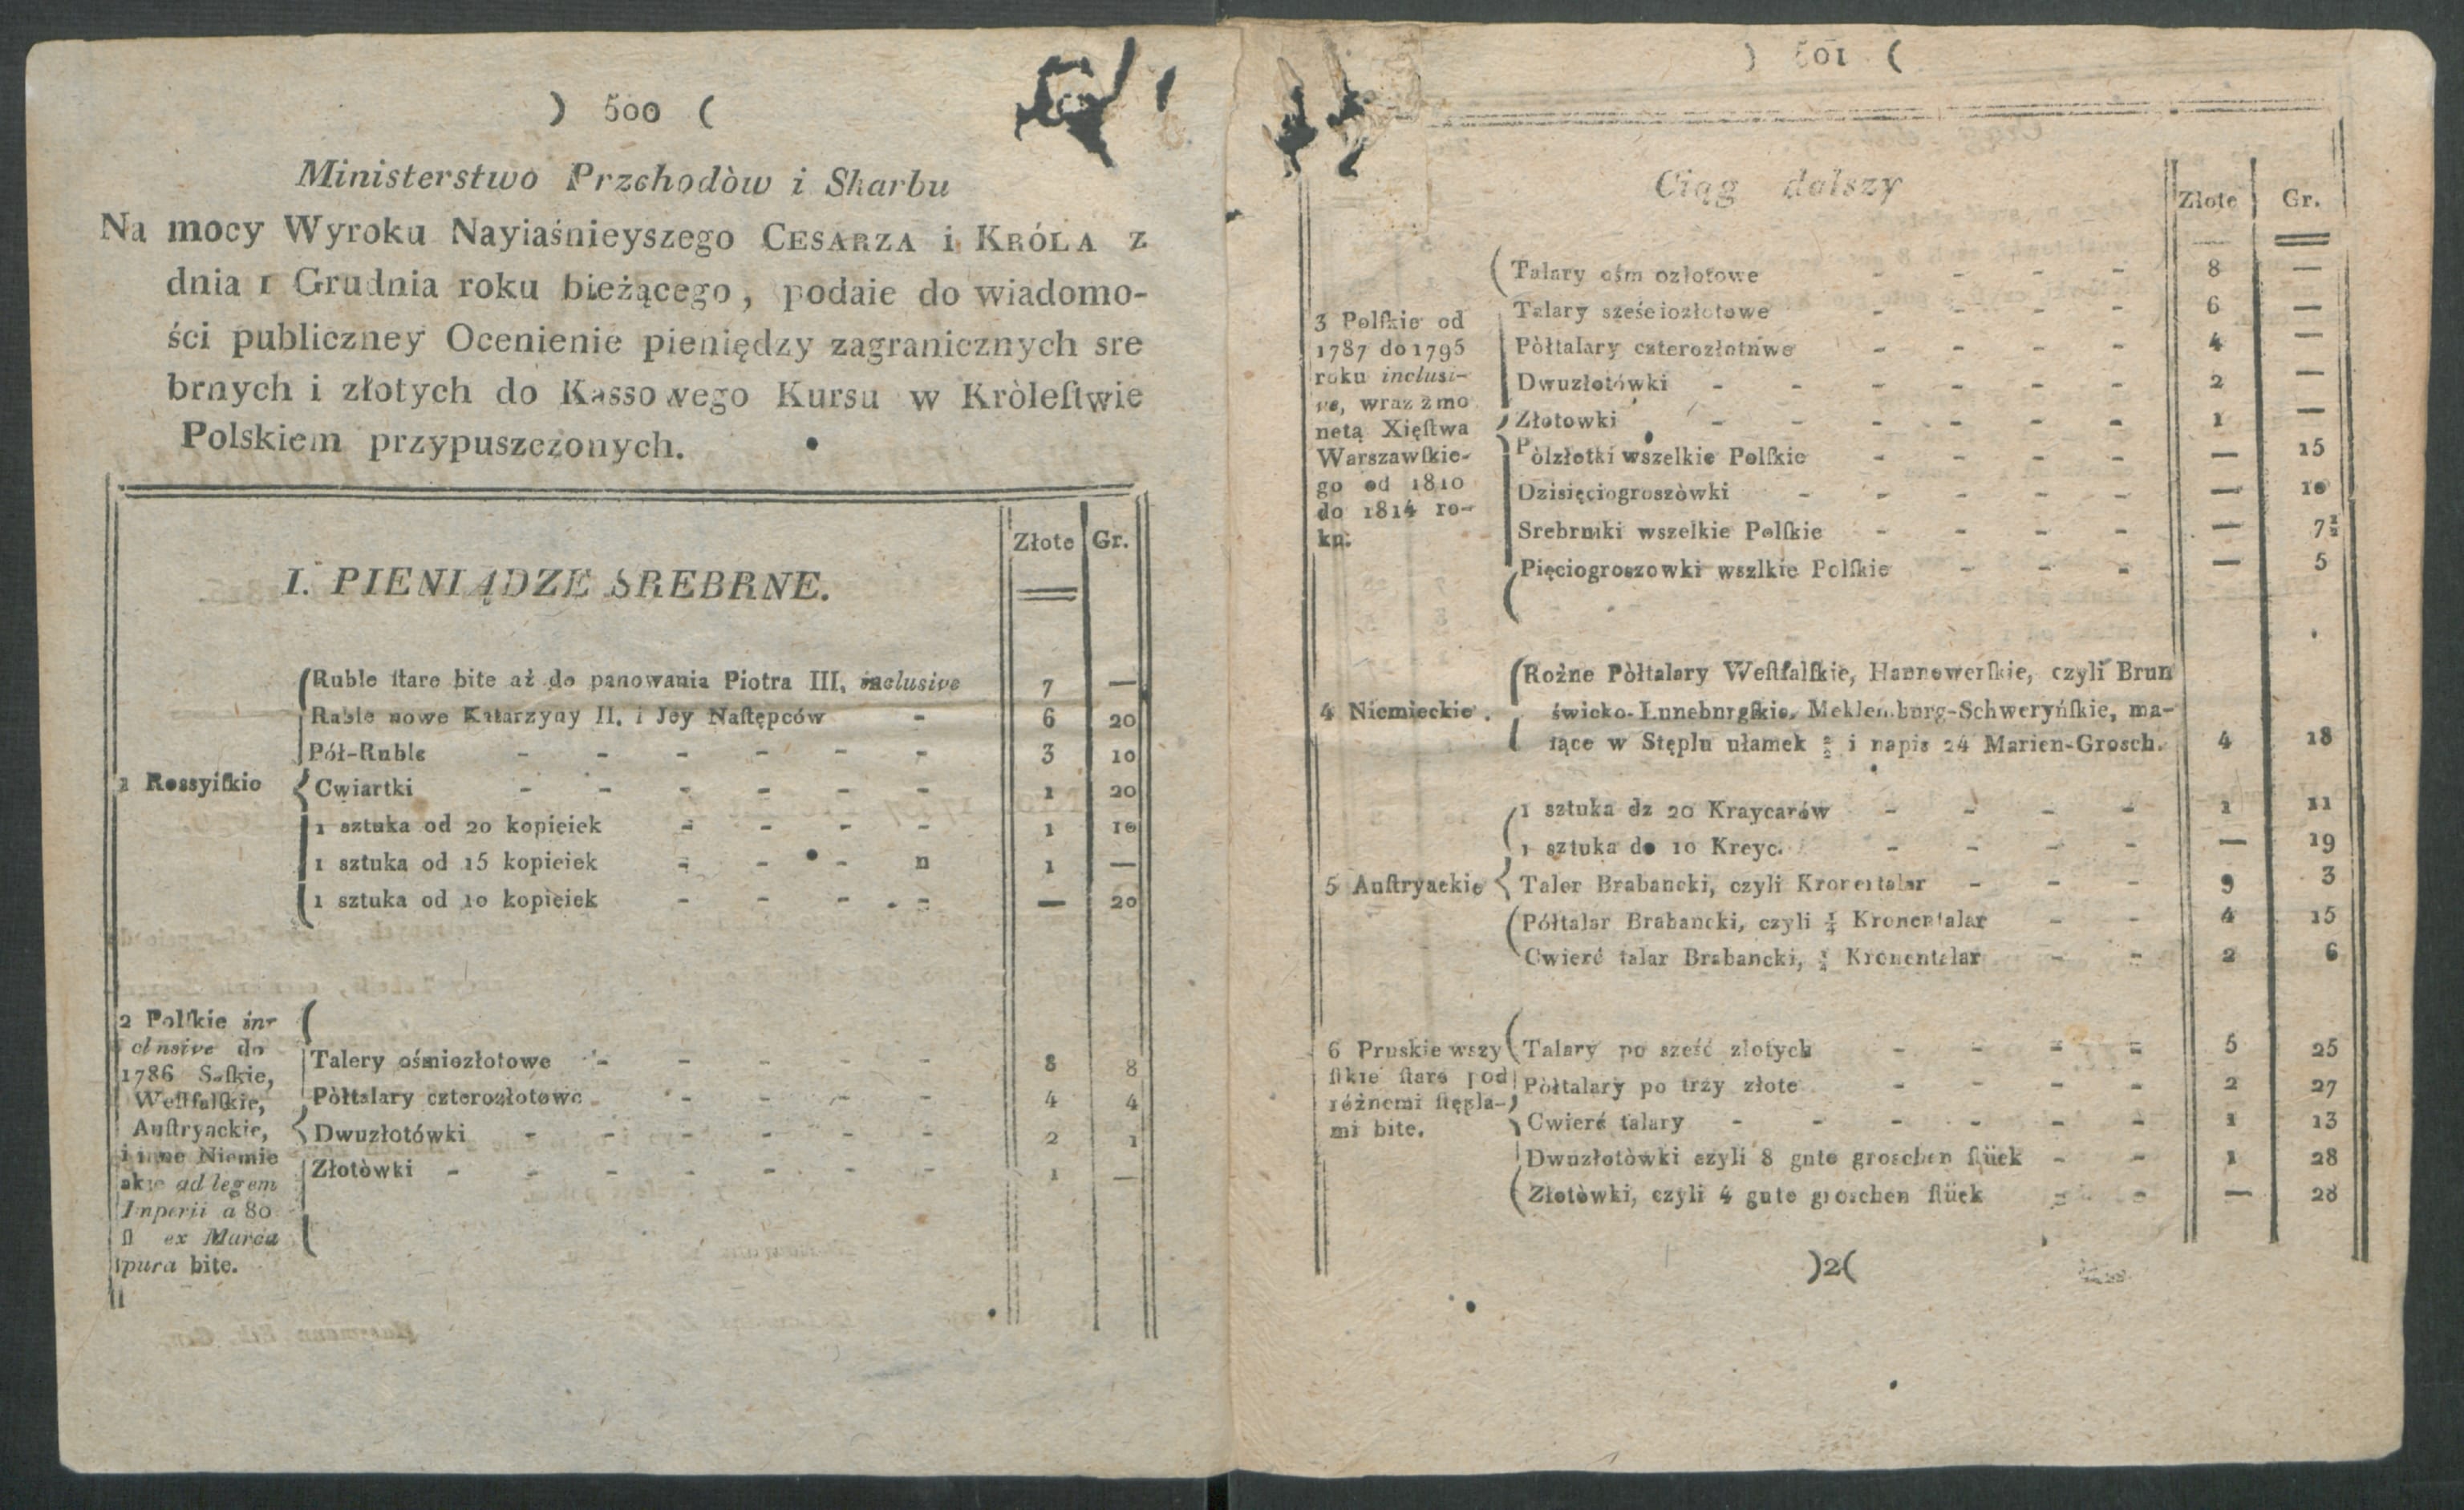 ) 500 (
Ministerstwo Przchodòw i Skarbu
Na mocy Wyroku Nayiaśnieyszego CESARZA i KRÓLA z
dnia 1 Grudnia roku bieżącego, podaie do wiadomo-
ści publiczney Ocenienie pieniędzy zagranicznych sre
brnych i złotych do Kassowego Kursu w Kròleſtwie
Polskiem przypuszczonych.
Złote Gr.
I. PIENIĄDZE SREBRNE.
1 Rossyiſkie
Ruble ſtare bite aż do panowania Piotra III, inclusive 7 —
Ruble nowe Katarzyny II. i Jey Naſtępców - 6 20
Pół-Ruble - - - - - - 3 10
Cwiartki - - - - - - 1 20
1 sztuka od 20 kopieiek - - - - 1 10
1 sztuka od 15 kopieiek - - - n 1 —
1 sztuka od 10 kopieiek - - - - — 20
2 Polſkie in-
clusive do
1786 Saſkie,
Weſtfalſkie,
Auſtryackie,
i inne Niemie
akie ad legem
Inperii a 80
fl ex Marca
pura bite.
Talery ośmiozłotowe - - - - - 8 8
Pòłtalary czterozłotowe - - - - 4 4
Dwuzłotówki - - - - - - 2 1
Złotòwki - - - - - - - 1 —
) 501 (
Ciąg dalszy
Złote Gr.
3 Polſkie od
1787 do 1795
roku inclusi-
ve, wraz z mo
netą Xięſtwa
Warszawſkie-
go od 1810
do 1814 ro-
ku.
Talary ośm ozłotowe - - - - 8 —
Talary sześciozłotowe - - - - 6 —
Pòłtalary czterozłotowe - - - - 4 —
Dwuzłotówki - - - - - - 2 —
Złotowki - - - - - - 1 —
Pòlzłotki wszelkie Polſkie - - - - — 15
Dzisięciogroszòwki - - - - - — 10
Srebrniki wszelkie Polſkie - - - - — 7½
Pięciogroszowki wszlkie Polſkie - - - — 5
4 Niemieckie.
Rożne Pòłtalary Weſtfalſkie, Hannowerſkie, czyli Brun
świcko-Luneburgſkie, Meklemburg-Schweryńſkie, ma-
iące w Stęplu ułamek i napis 24 Marien-Grosch. 4 18
5 Auſtryackie
1 sztuka dz 20 Kraycarów - - - - 1 11
1 sztuka do 10 Kreyc. - - - - — 19
Taler Brabancki, czyli Kronentalar - - - 9 3
Półtalar Brabancki, czyli ¼ Kronentalar - - 4 15
Cwierć talar Brabancki, Kronentalar - - 2 6
6 Pruskie wszy
ſtkie ſtare pod
różnemi ſtępla-
mi bite.
Talary po sześć złotych - - - - 5 25
Pòłtalary po trzy złote - - - - 2 27
Cwierć talary - - - - - - 1 13
Dwuzłotòwki czyli 8 gute groschen ſtück - - 1 28
Złotòwki, czyli 4 gute groschen ſtück - - — 28
)2(